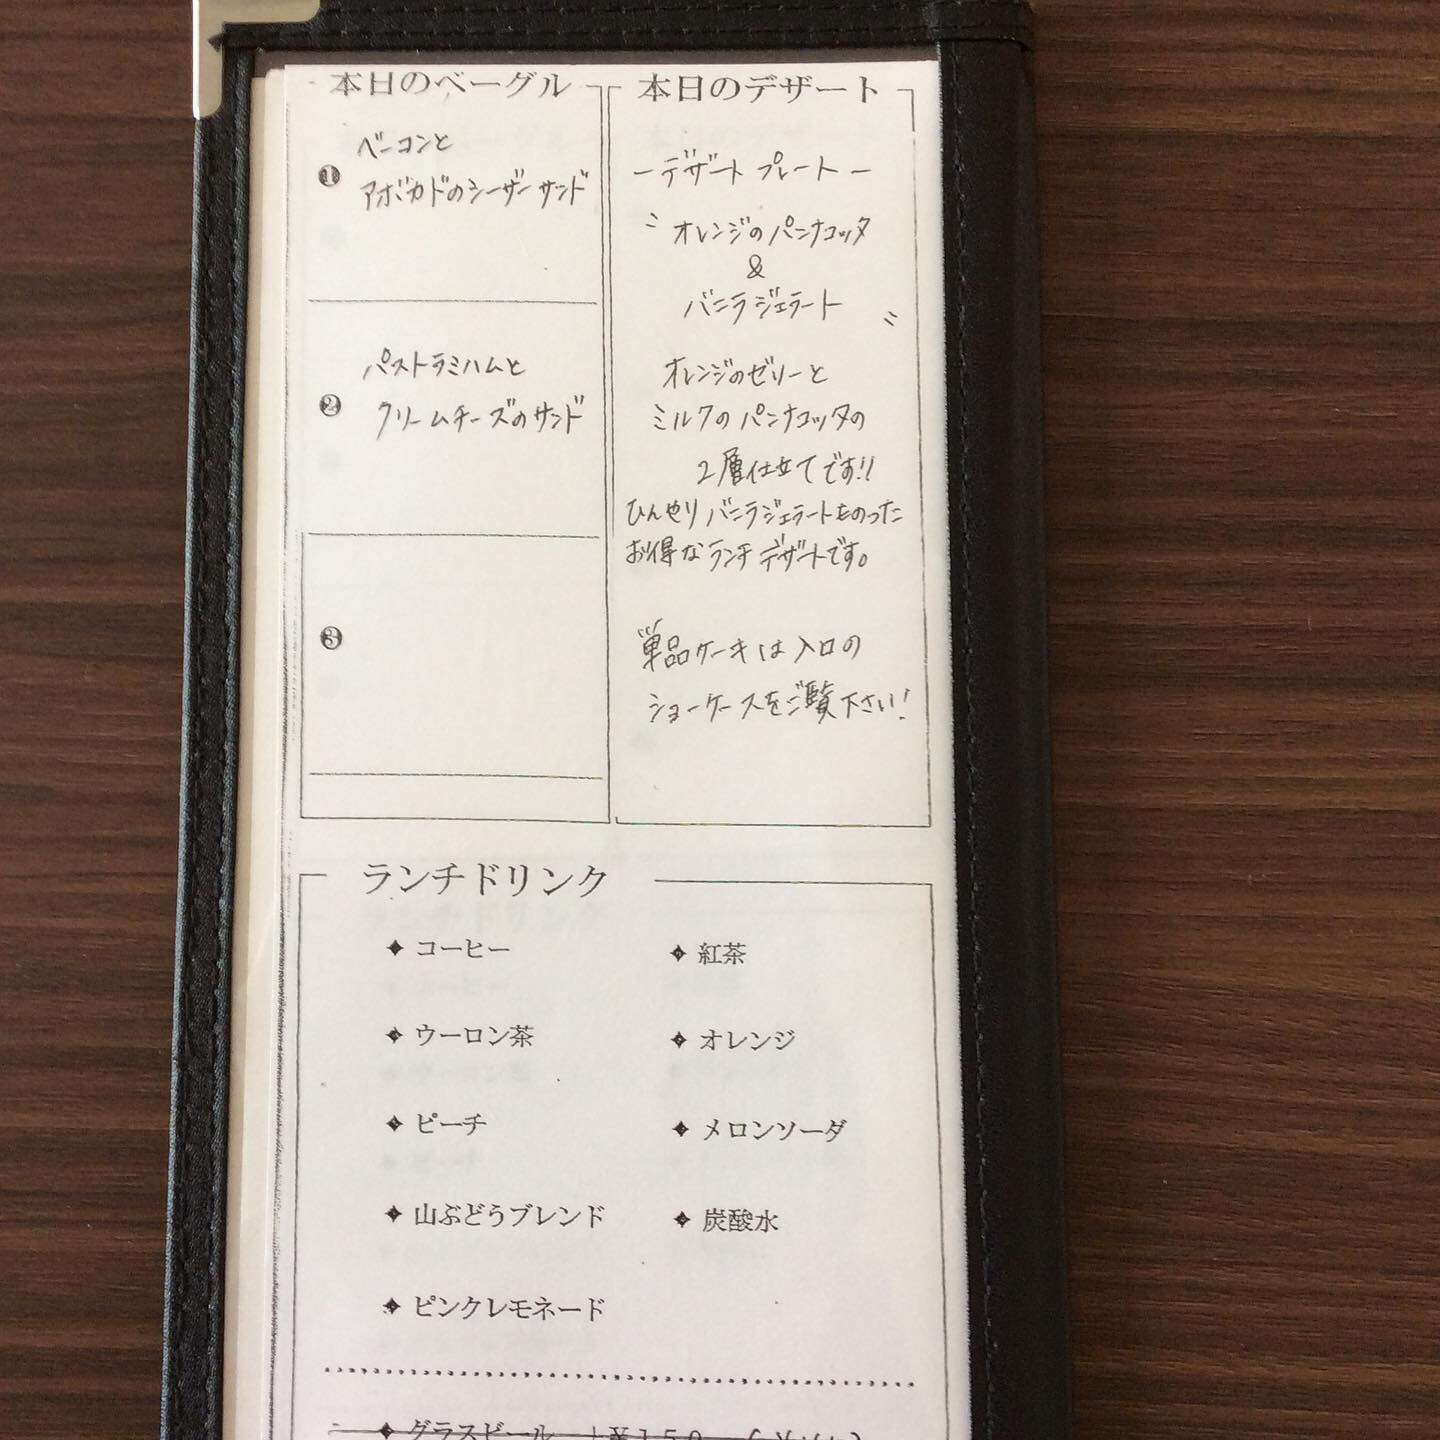 本日のベーグル
❶ ベーコンと
アボカドのシーザーサンド
❷ パストラミハムと
クリームチーズのサンド
❸
本日のデザート
ーデザートプレートー
オレンジのパンナコッタ
&
バニラジェラート
オレンジのゼリーと
ミルクのパンナコッタの
2層仕立てです!!
ひんやりバニラジェラートをのった
お得なランチデザートです。
単品ケーキは入口の
ショーケースをご覧下さい!
ランチドリンク
✦ コーヒー
✦ 紅茶
✦ ウーロン茶
✦ オレンジ
✦ ピーチ
✦ メロンソーダ
✦ 山ぶどうブレンド
✦ 炭酸水
✦ ピンクレモネード
✦ グラスビール +¥150